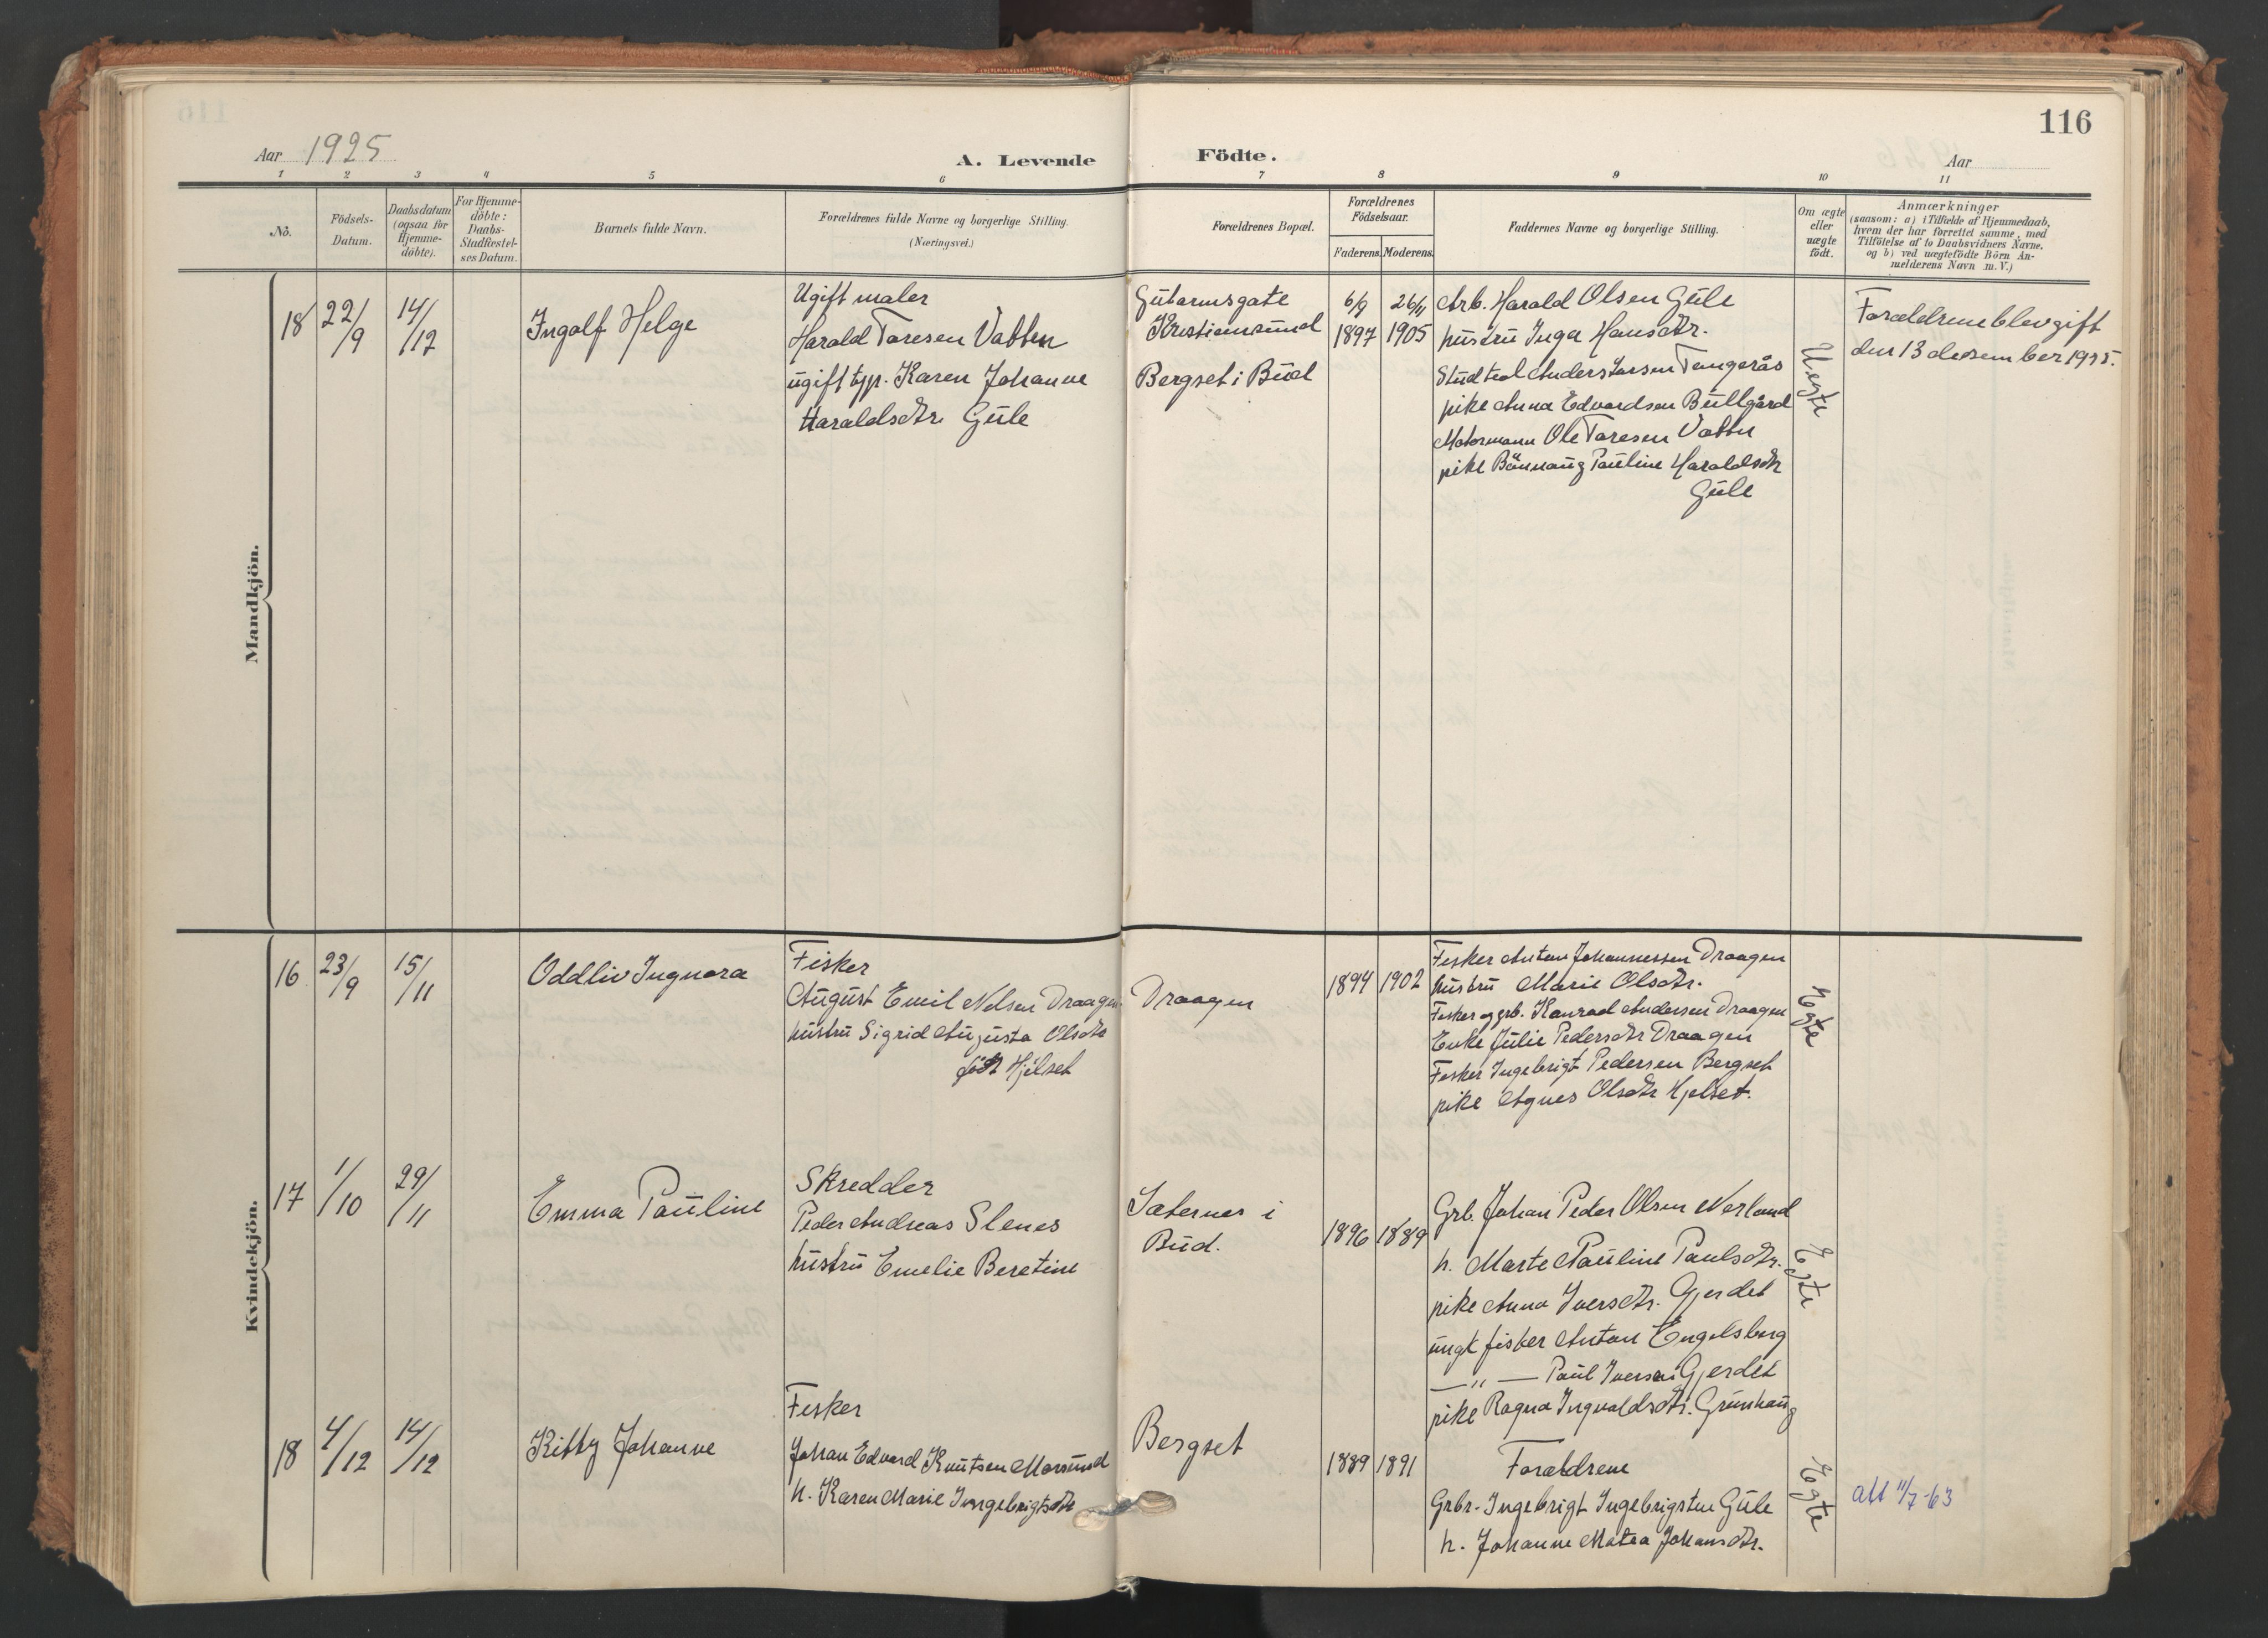 116
Aar 1925
A. Levende Födte.
Aar
1 2 3 4 5 6 7 8 9 10 11
No.
Födsels-
Datum.
Daabsdatum
(ogsaa for
Hjemme-
döbte).
For Hjemme-
döbte:
Daabs-
Stadfæstel-
ses Datum.
Barnets fulde Navn.
Forældrenes fulde Navne og borgerlige Stilling.
(Næringsvei.)
Forældrenes Bopæl.
Forældrenes
Födselsaar.
Faderens. Moderens.
Faddernes Navne og borgerlige Stilling.
Om ægte
eller
uægte
födt.
Anmærkninger
(saasom: a) i Tilfælde af Hjemmedaab,
hvem der har forrettet samme, med
Tilföielse af to Daabsvidners Navne,
og b) ved uægtefödte Börn An-
melderens Navn m. V.)
Mandkjön.
18 22/9 14/12
Ingolf Helge
Ugift maler
Harald Taresen Vatten
ugift typ. Karen Johanne
Haraldsdtr. Gule
Kristiansund
Bergset i Bud
6/9 26/11
1897 1905
Arb. Harald Olsen Gule
hustru Inga Hansdtr.
Stud teol Anders Larsen Tangerås
pike Anna Edvardsen Bullgård
Motormann Ole Taresen Vatten
pike Pauline Haraldsdtr
Gule
Uegte
Forældrene blev gift
den 13 desember 1925.
Kvindekjön.
16 23/9 15/11
Oddliv Ingnora
Fisker
August Emil Nelsen Draagen
hustru Sigrid Augusta Olsdtr
født Hjelset
Draagen
1894 1902
Fisker Anton Johannessen Draagen
hustru Marie Olsdtr.
Fisker og grb. Konrad Andersen Draagen
Enke Julie Pedersdtr Draagen
Fisker Ingebrigt Pedersen Bergset
pike Agnes Olsdtr Hjelset.
Egte
17 1/10 29/11
Emma Pauline
Skredder
Peder Andreas Slenes
hustru Emelie Beretine
Sæternes i
Bud.
1896 1889
Grb. Johan Peder Olsen Nerland
h. Marte Pauline Paulsdtr.
pike Anna Iversdtr. Gjerdet
ungk fisker Anton Engelsberg
— " — Paul Iversen Gjerdet
pike Ragna Ingvaldsdtr. Grønhaug
Egte
18 4/12 14/12
Kitty Johanne
Fisker
Johan Edvard Knutsen Morsund
h. Karen Marie Ingebrigtsdtr
Bergset
1889 1891
Forældrene
Grbr. Ingebrigt Ingebrigtsen Gule
h. Johanne Matea Johansdtr.
Egte
att 11/7-63